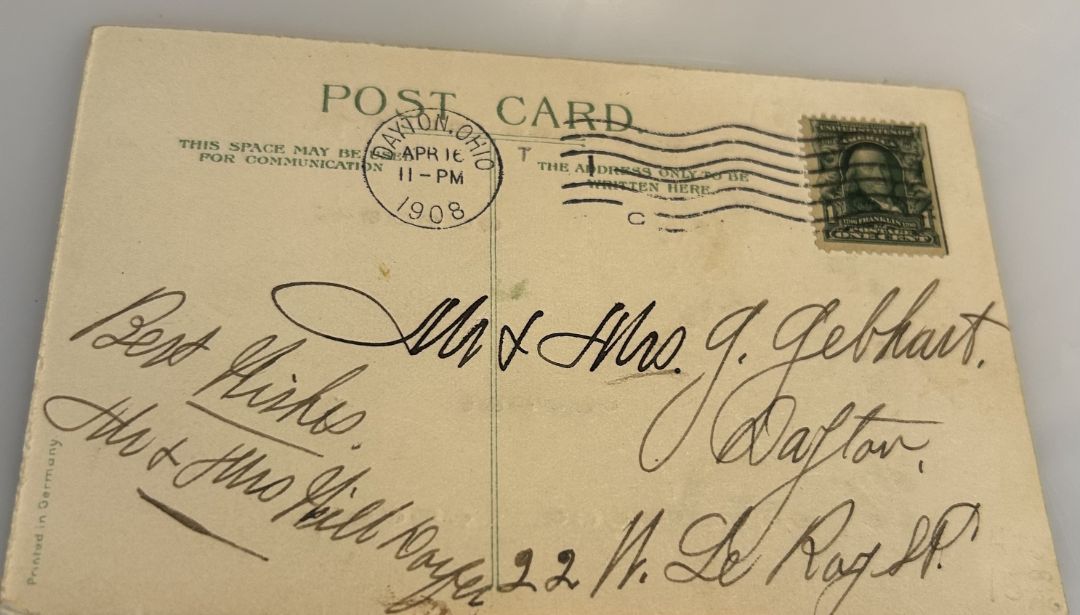 POST CARD.
THIS SPACE MAY BE USED
FOR COMMUNICATION
DAYTON, OHIO
APR 16
11-PM
1908
T
THE ADDRESS ONLY TO BE
WRITTEN HERE.
1
C
UNITED STATES OF
AMERICA
FRANKLIN
POSTAGE
ONE CENT
Mr & Mrs. G. Gebhart.
Dayton,
22 W. Le Roy St.
Best Wishes.
Mr & Mrs Will
Printed in Germany